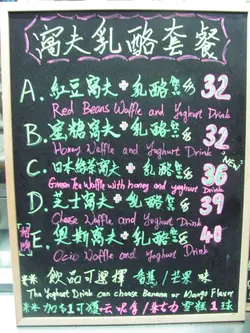 窩夫乳酪套餐
A. 紅豆窩夫 + 乳酪 32
Red Beans Waffle and Yoghurt Drink
B. 蜜糖窩夫 + 乳酪 32
Honey Waffle and Yoghurt Drink
NEW
C. 日本綠茶窩夫 + 乳酪 36
Green tea Waffle with honey and yoghurt Drink
D. 芝士窩夫 + 乳酪 39
Cheese Waffle and Yoghurt Drink
E. 奧斯窩夫 + 乳酪 40
Ocio Waffle and Yoghurt Drink
飲品可選擇 香蕉/芒果 味
The Yoghurt Drink can choose Banana or Mango Flavor
加 可 朱古力 雪糕1球